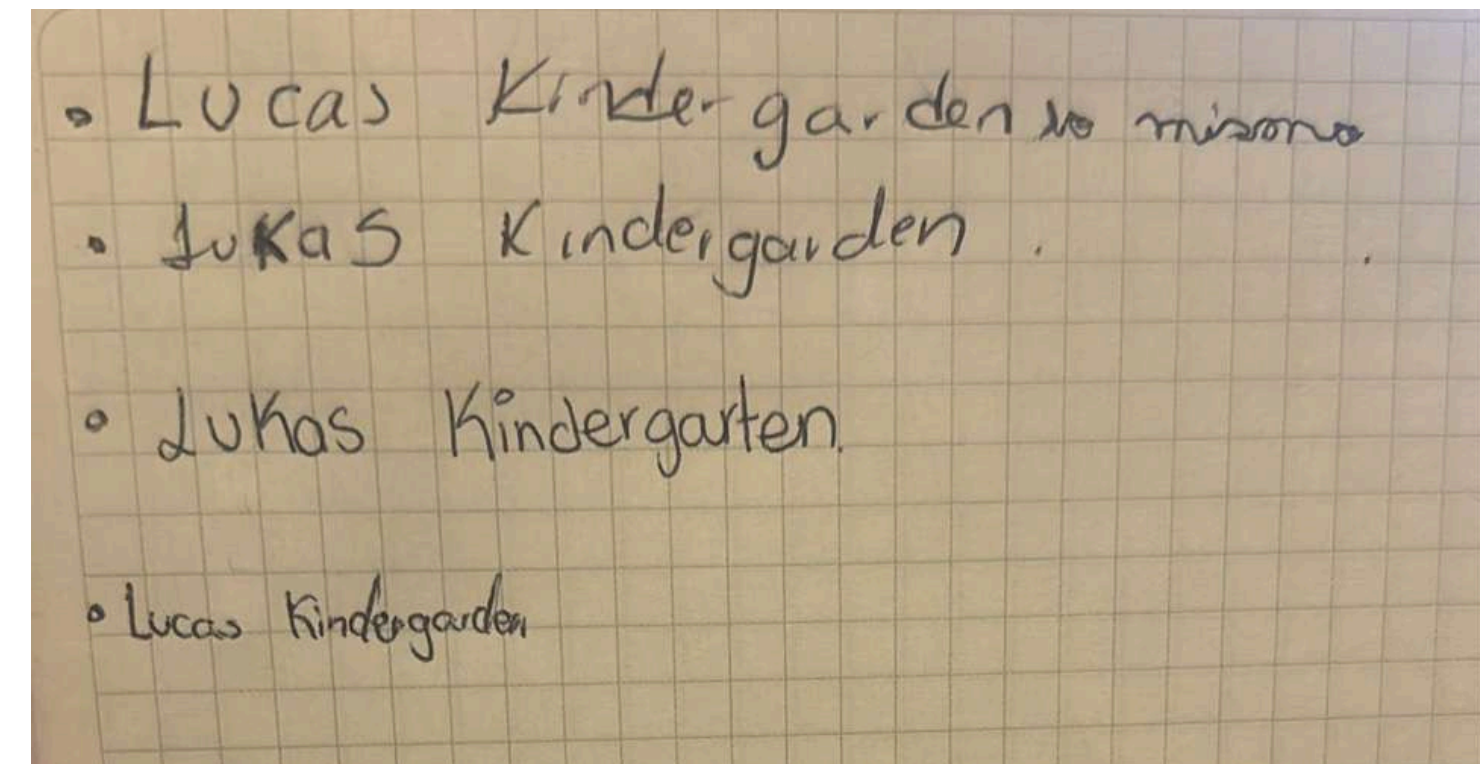 • Lucas Kindergarden lo mismo
• Lukas Kindergarden .
• Lukas Kindergarten.
• Lucas Kindergarden